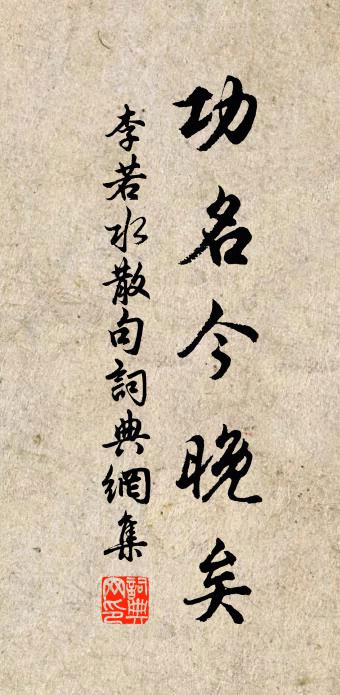 功名今晚矣
李若水散句詞典網集
詞典
网印